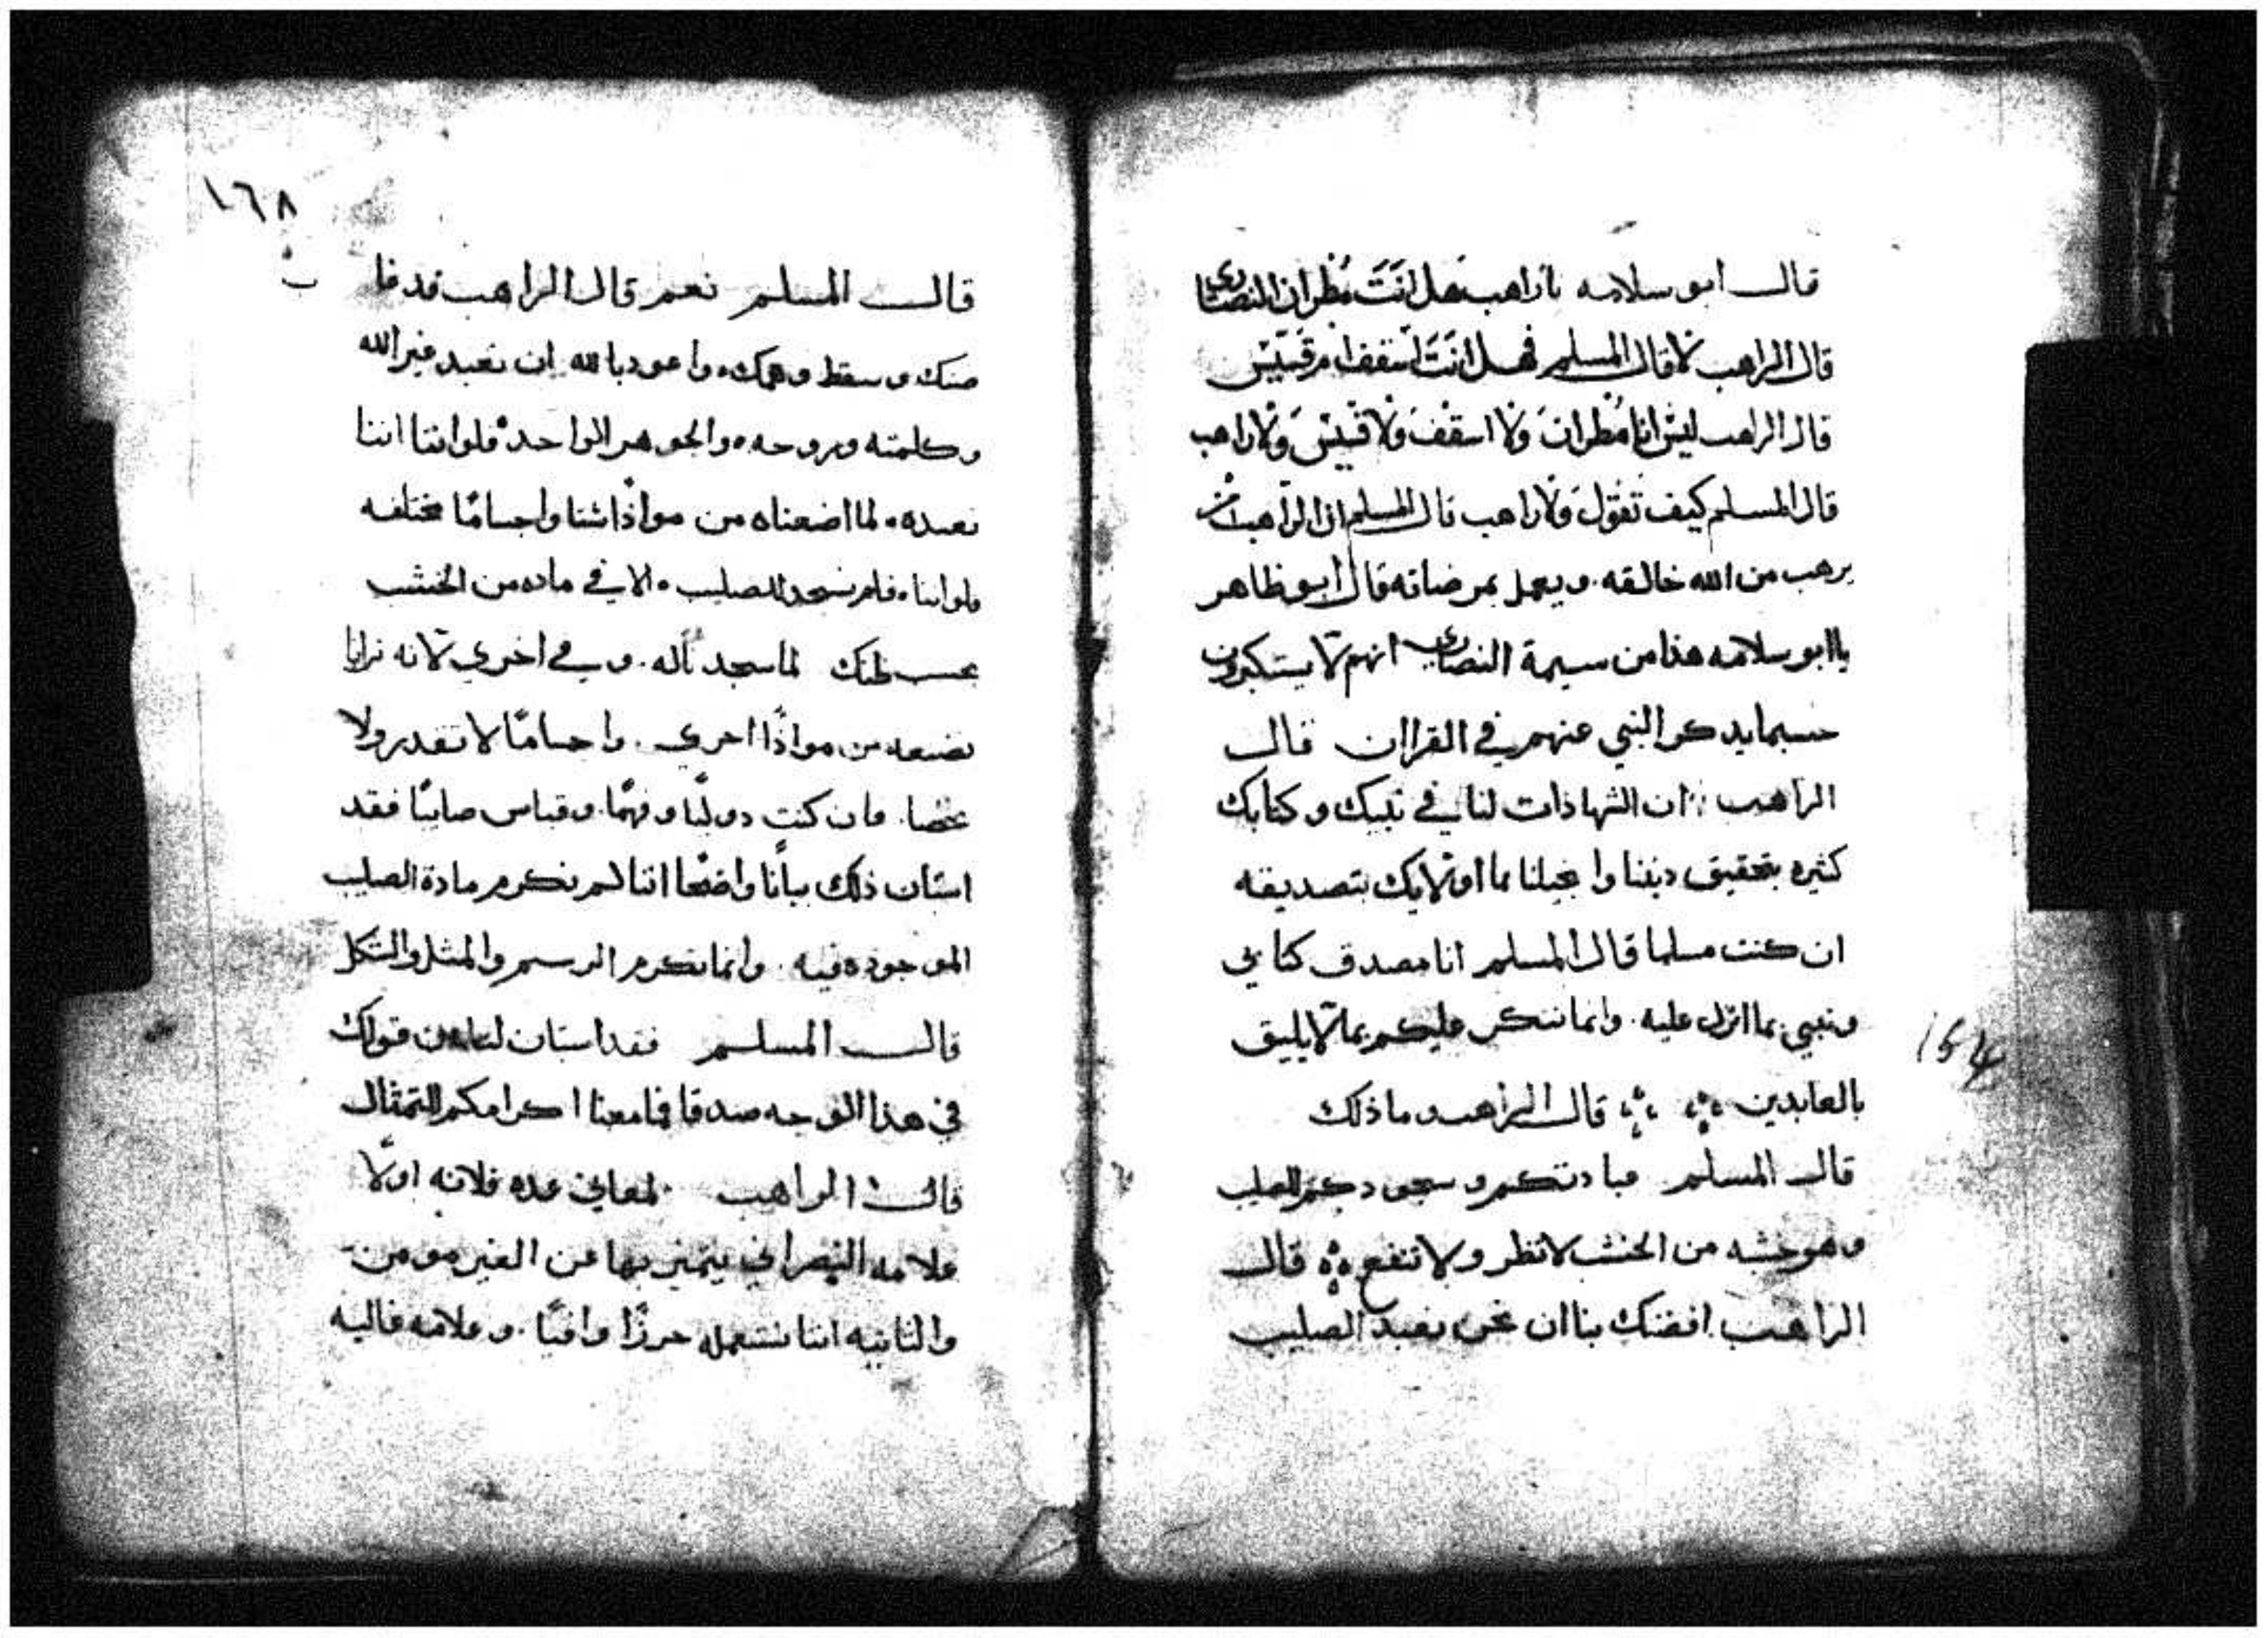 قال ابو سلامه ياراهب هل انت مطران النصارى
قال الراهب لا قال المسلم فهل انت اسقف ام قسيس
قال الراهب ليس انا مطران ولا اسقف ولا قسيس ولا راهب
قال المسلم كيف تقول ولا راهب قال المسلم ان الراهب من
يرهب من الله خالقه. ويعمل بمرضاته قال ابو ظاهر
يا ابو سلامه هذا من سيمة النصارى انهم لا يستكبرون
حسبما يدكر النبي عنهم في القراان قال
الراهب ان الشهادات لنا في نبيك وكتابك
كثيره بتحقيق ديننا وانجيلنا ما اولايك بتصديقه
ان كنت مسلما قال المسلم انا مصدق كتابي
ونبيي بما انزل عليه. وانما ننكر عليكم بما لا يليق
بالعابدين قال الراهب وما ذلك
قال المسلم عبادتكم وسجودكم للصليب
وهو خشبه من الخشب لا تظر ولا تنفع قال
الراهب افضنك بنا ان نحن نعبد الصليب
١٦٨
قال المسلم نعم قال الراهب قد فا
منك وسقط وهمك. واعود بالله ان نعبد غير الله
وكلمته وروحه. والجوهر الواحد فلو اننا اننا
نعبده. لما اضعناه من مواذا شتا واجسامًا مختلفه
ولو اننا. فلم نسجد للصليب. الا في ماده من الخشب
بحسب ظنك لما سجدنا له. وفي اخري لانه ترانا
نضعه من مواذًا اخري. واجسامًا لا تقدر ولا
تحصا. فان كنت دو لبًا وفهمًا. وقياس صايبًا فقد
استبان ذلك بيانًا واضحًا اننا لم نكرم مادة الصليب
الموجوده فيه. وانما نكرم الرسم والمثل والشكل
قال المسلم فقد استبان لنا من قولك
في هذا الوجه صدقا فما معنا اكرامكم للتمثال
قال الراهب لمعاني عده فلانه اولًا
علامه النصراني يتميز بها عن الغير مومن
والثانيه اننا نستعمله حرزًا واقيًا. وعلامه غاليه